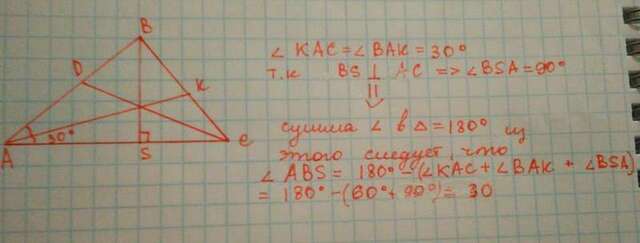 B
D
K
30°
A
S
C
∠ KAC = ∠ BAK = 30°
т.к BS ⊥ AC => ∠BSA = 90°
⇓
сумма ∠ в Δ = 180° из
этого следует, что
∠ ABS = 180° - (∠KAC + ∠BAK + ∠BSA)
= 180° - (60° + 90°) = 30